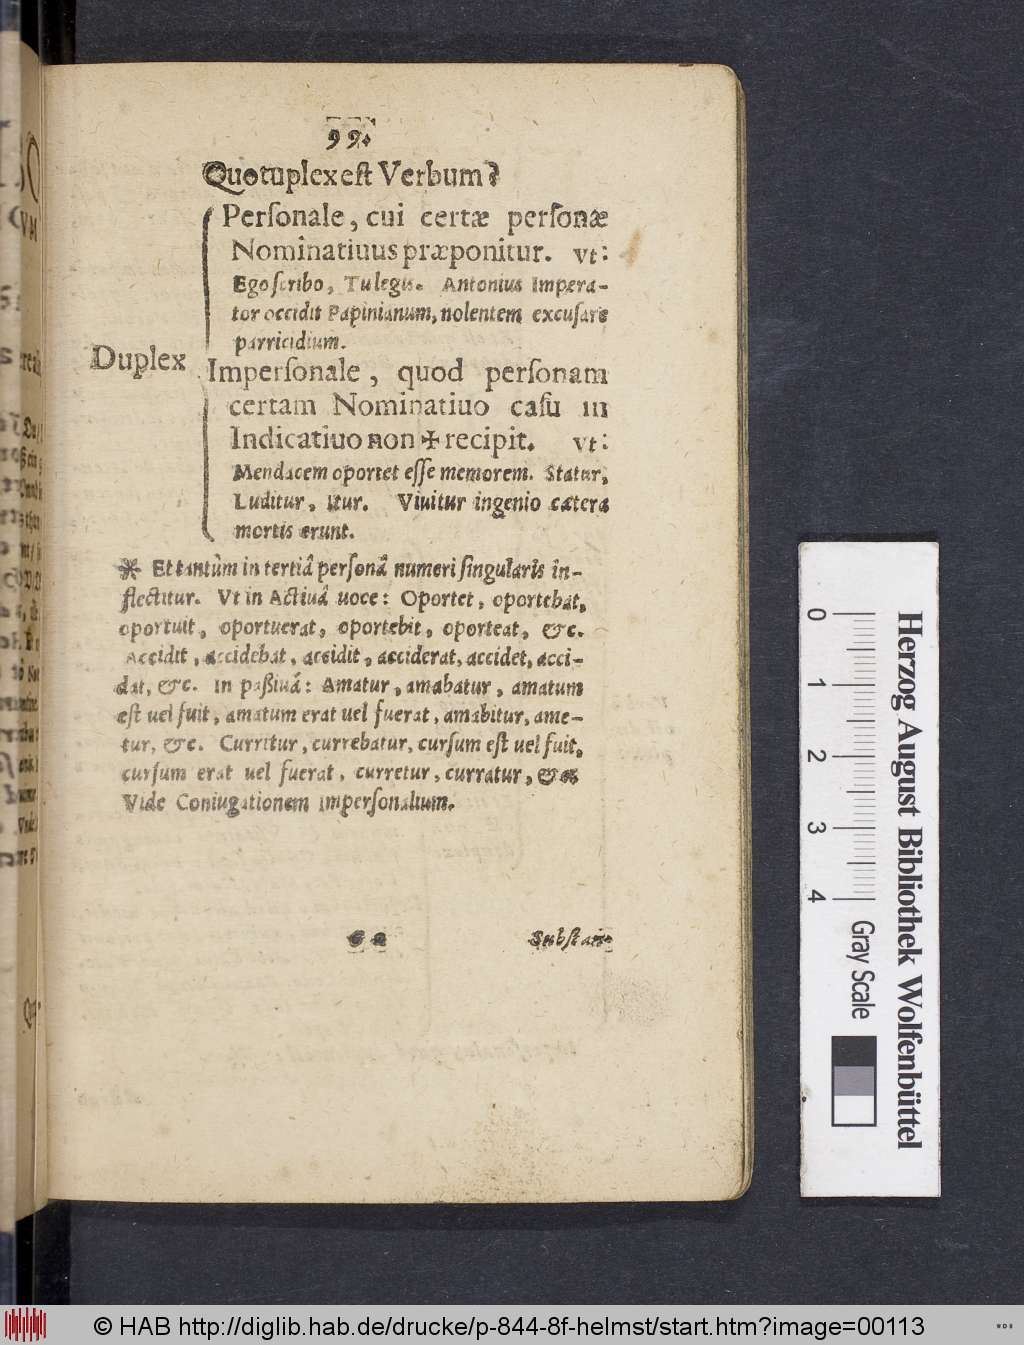 99.
Quotuplex est Verbum?
Perſonale, cui certæ perſonæ
Nominatiuus præponitur. vt:
Ego ſcribo, Tu legis. Antonius Impera-
tor occidit Papinianum, nolentem excuſare
parricidium.
Duplex
Imperſonale, quod perſonam
certam Nominatiuo caſu in
Indicatiuo non ✠ recipit. vt:
Mendacem oportet eſſe memorem. Statur,
Luditur, Itur. Viuitur ingenio cætera
mortis erunt.
* Et tantùm in tertiâ perſonâ numeri ſingularis in-
flectitur. Vt in Actiuâ uoce: Oportet, oportebat,
oportuit, oportuerat, oportebit, oporteat, &c.
Accidit, accidebat, accidit, acciderat, accidet, acci-
dat, &c. In paßiuâ: Amatur, amabatur, amatum
eſt uel fuit, amatum erat uel fuerat, amabitur, ame-
tur, &c. Curritur, currebatur, curſum eſt uel fuit,
curſum erat uel fuerat, curretur, curratur, &c.
Vide Coniugationem Imperſonalium.
G 2
Subſtan-
0 1 2 3 4
Gray Scale
Herzog August Bibliothek Wolfenbüttel
© HAB http://diglib.hab.de/drucke/p-844-8f-helmst/start.htm?image=00113